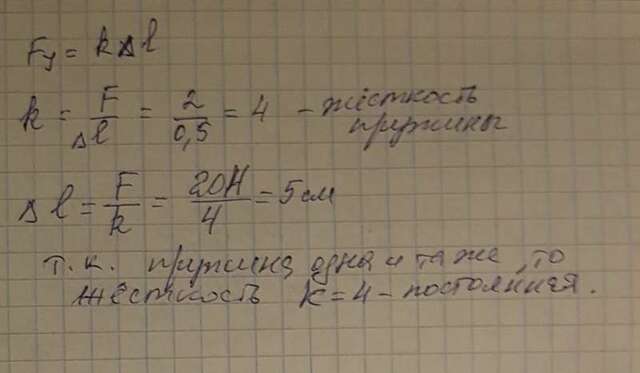 Fу = kΔl
k = F/Δl = 2/0,5 = 4 - жёсткость
пружины
Δl = F/k = 20Н/4 = 5 см
т.к. пружина одна и та же, то
жёсткость k = 4 - постоянная.